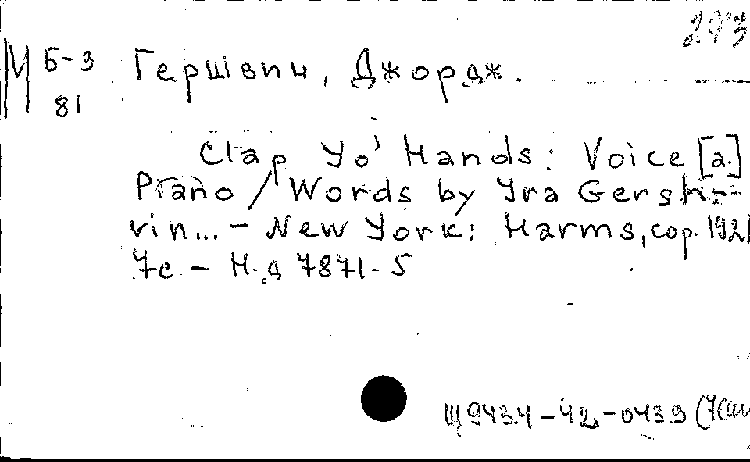 293
М Б-3 Гершвин, Джордж.
81
Clap Yo' Hands: Voice [a.]
Piano / Words by Yra Gersh-
vin... - New York: Harms, cop. 192
7с. - Н.д 7871-5
Щ9434-42-0439